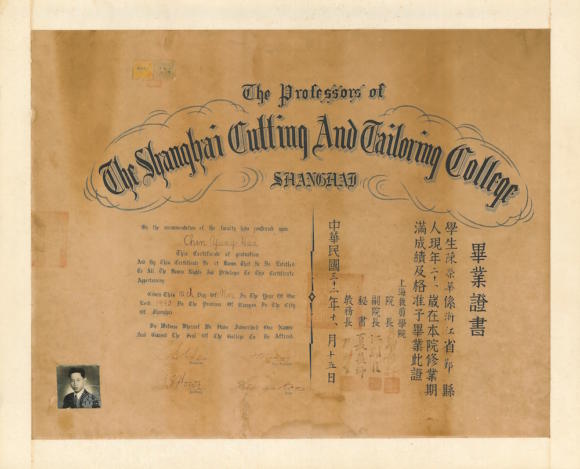 The Professors of
The Shanghai Cutting And Tailoring College
SHANGHAI
By the recommendation of the faculty have conferred upon
Chen Yung Hua
This Certificate of graduation
And By This Certificate Be It Known That He Is Entitled
To All The Honor Rights And Privilege To This Certificate
Appertaining
Given This 15th Day Of Nov. In The Year Of Our
Lord 1943 In The Province Of Kiangsu In The City
Of Shanghai
In Witness Whereof We Have Subscribed Our Names
And Caused The Seal Of The College To Be Affixed
畢業證書
學生陳榮華係浙江省鄞縣
人現年二十一歲在本院修業期
滿成績及格准予畢業此證
上海裁剪學院
院長
副院長
秘書
教務長
中華民國三十二年十一月十五日